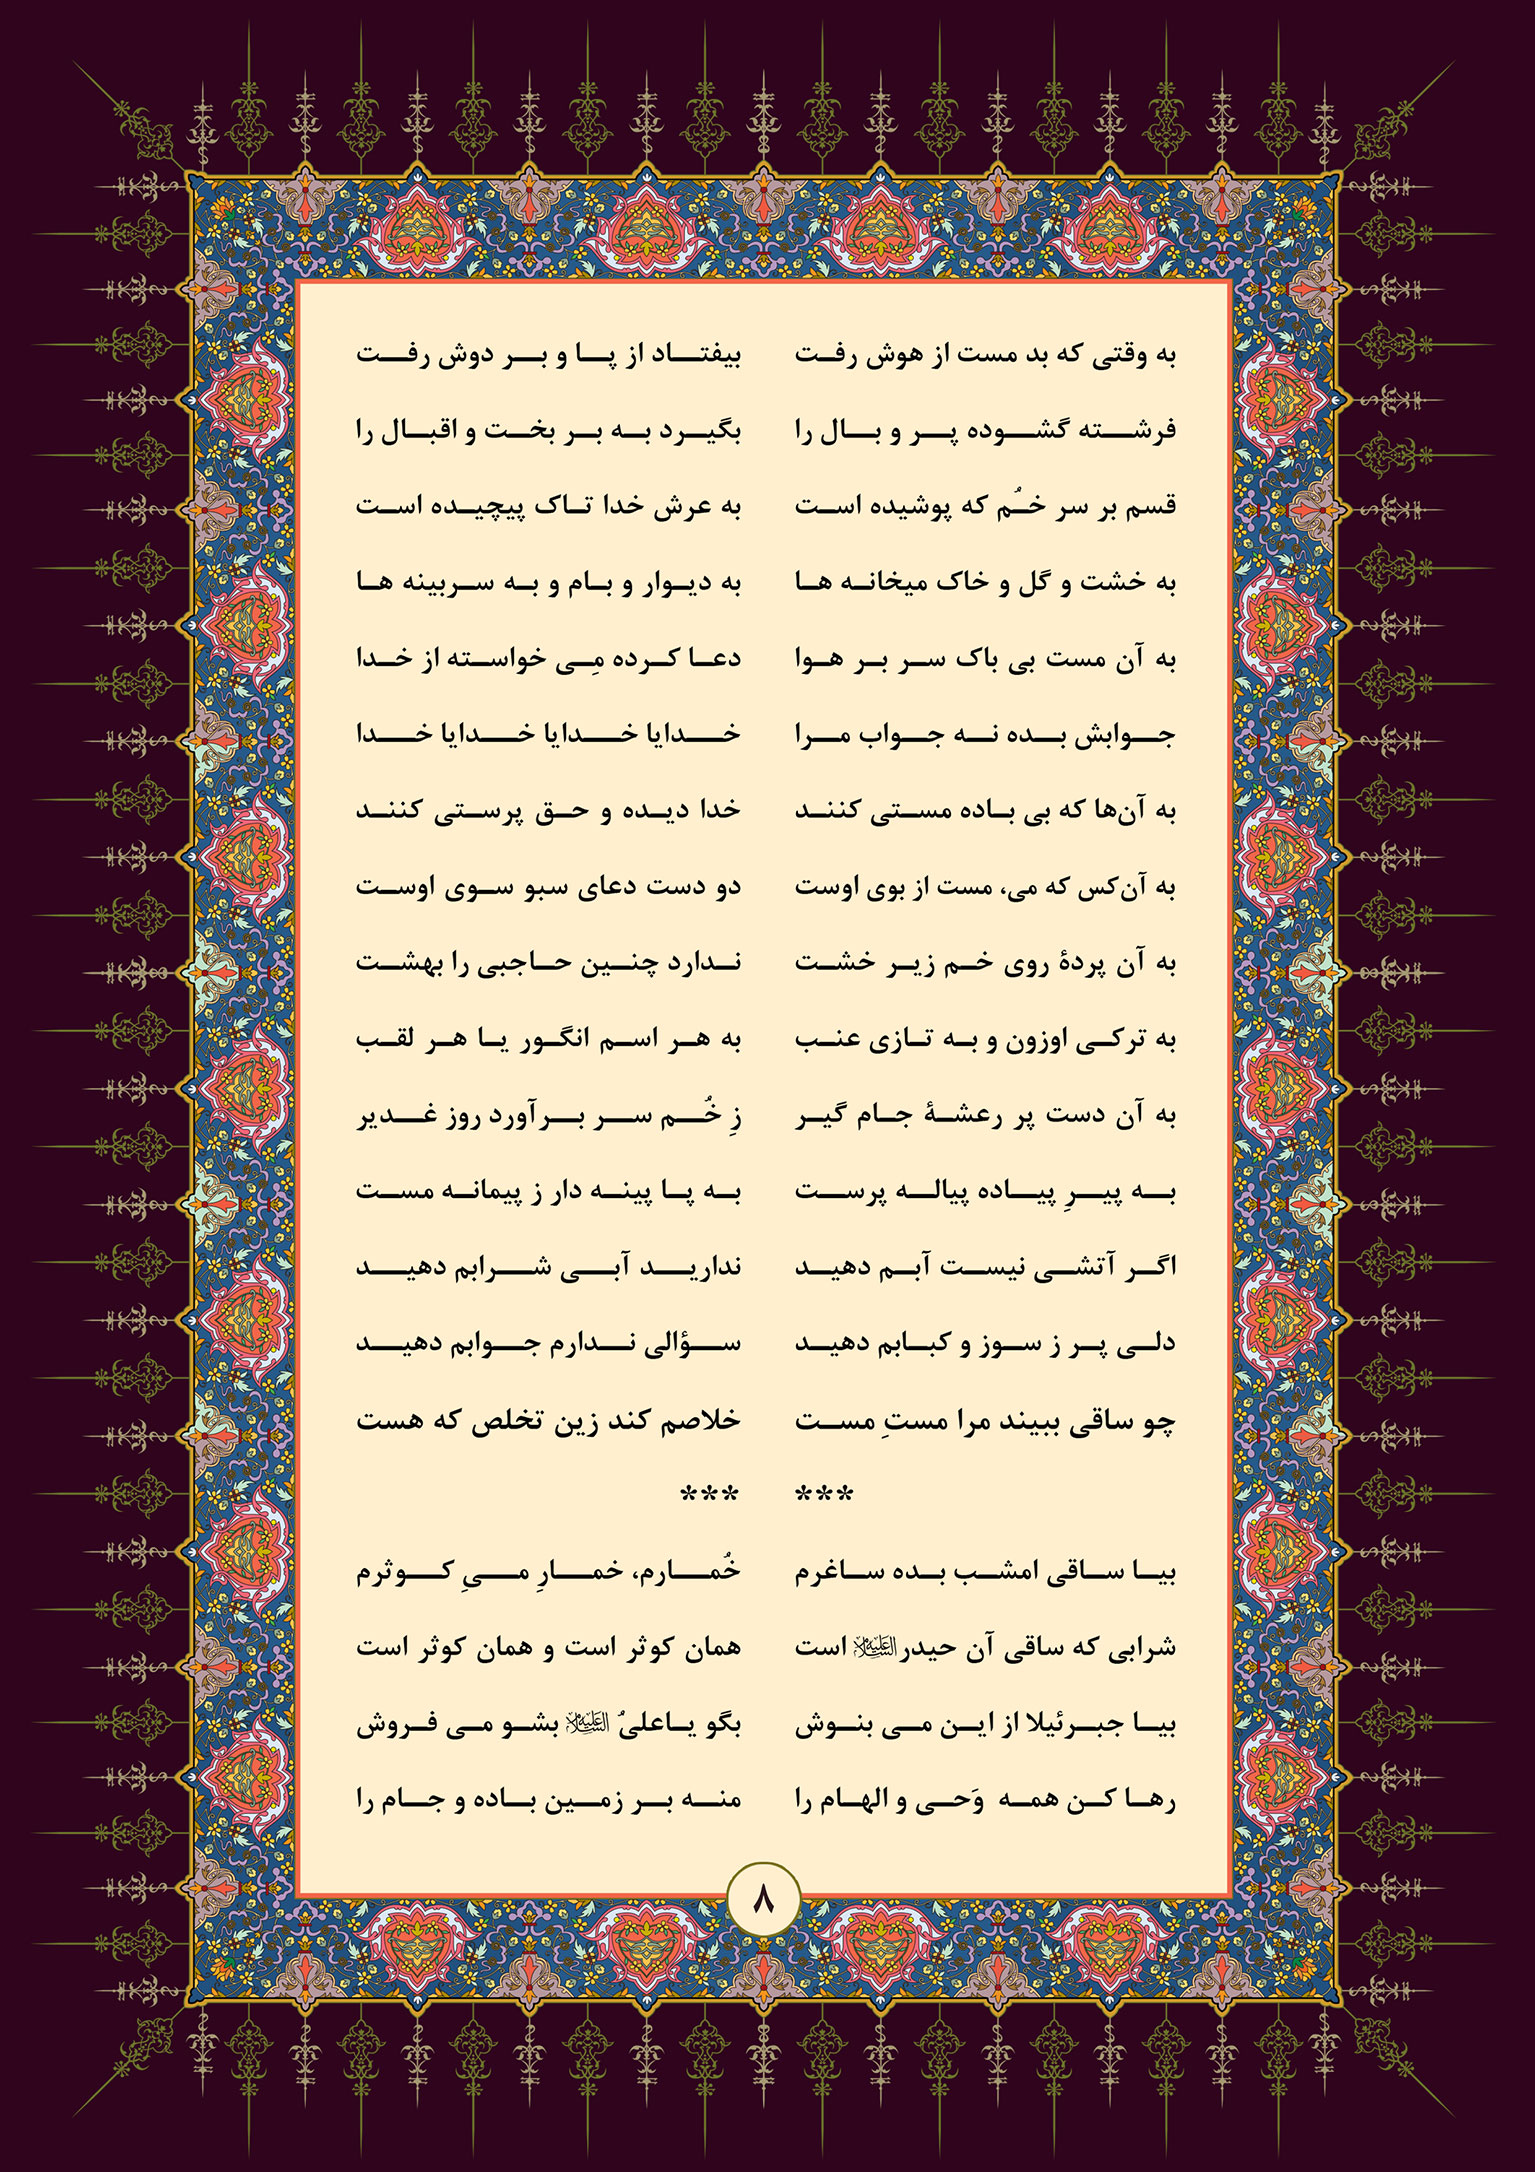 به وقتی که بد مست از هوش رفت بیفتاد از پا و بر دوش رفت
فرشته گشوده پر و بال را بگیرد به بر بخت و اقبال را
قسم بر سر خُم که پوشیده است به عرش خدا تاک پیچیده است
به خشت و گل و خاک میخانه ها به دیوار و بام و به سربینه ها
به آن مست بی باک سر بر هوا دعا کرده مِی خواسته از خدا
جوابش بده نه جواب مرا خدایا خدایا خدایا خدا
به آن‌ها که بی باده مستی کنند خدا دیده و حق پرستی کنند
به آن‌کس که می، مست از بوی اوست دو دست دعای سبو سوی اوست
به آن پردهٔ روی خم زیر خشت ندارد چنین حاجبی را بهشت
به ترکی اوزون و به تازی عنب به هر اسم انگور یا هر لقب
به آن دست پر رعشهٔ جام گیر زِ خُم سر برآورد روز غدیر
به پیرِ پیاده پیاله پرست به پا پینه دار ز پیمانه مست
اگر آتشی نیست آبم دهید ندارید آبی شرابم دهید
دلی پر ز سوز و کبابم دهید سؤالی ندارم جوابم دهید
چو ساقی ببیند مرا مستِ مست خلاصم کند زین تخلص که هست
*** ***
بیا ساقی امشب بده ساغرم خُمارم، خمارِ میِ کوثرم
شرابی که ساقی آن حیدر علیه السلام است همان کوثر است و همان کوثر است
بیا جبرئیلا از این می بنوش بگو یاعلیُ علیه السلام بشو می فروش
رها کن همه وَحی و الهام را منه بر زمین باده و جام را
۸